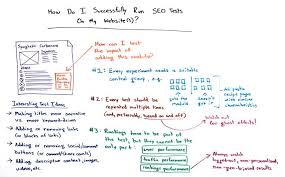 How Do I Successfully Run SEO Tests
On My Website(s)?
Spaghetti Carbonara
How can I test
the impact of
adding this module?
#1: Every experiment needs a suitable
control group, e.g.
gets the
module
doesn't
All pasta
recipe pages
with similar
characteristics
#2: Every test should be
repeated multiple times
(and, preferably, turned on and off)
Watch out
for ghost effects!
#3: Rankings have to be part of
the test, but they cannot be the
only part!
user performance
traffic performance
rankings performance
Always watch
logged-out, non-personalized,
non-geo-biased results!
Interesting Test Ideas:
Making titles more narrative
vs. more keyword-driven
Adding or removing links
(or blocks of links)
Adding or removing social/comment
buttons (or count/share counts)
Adding descriptive content, images,
videos, etc.